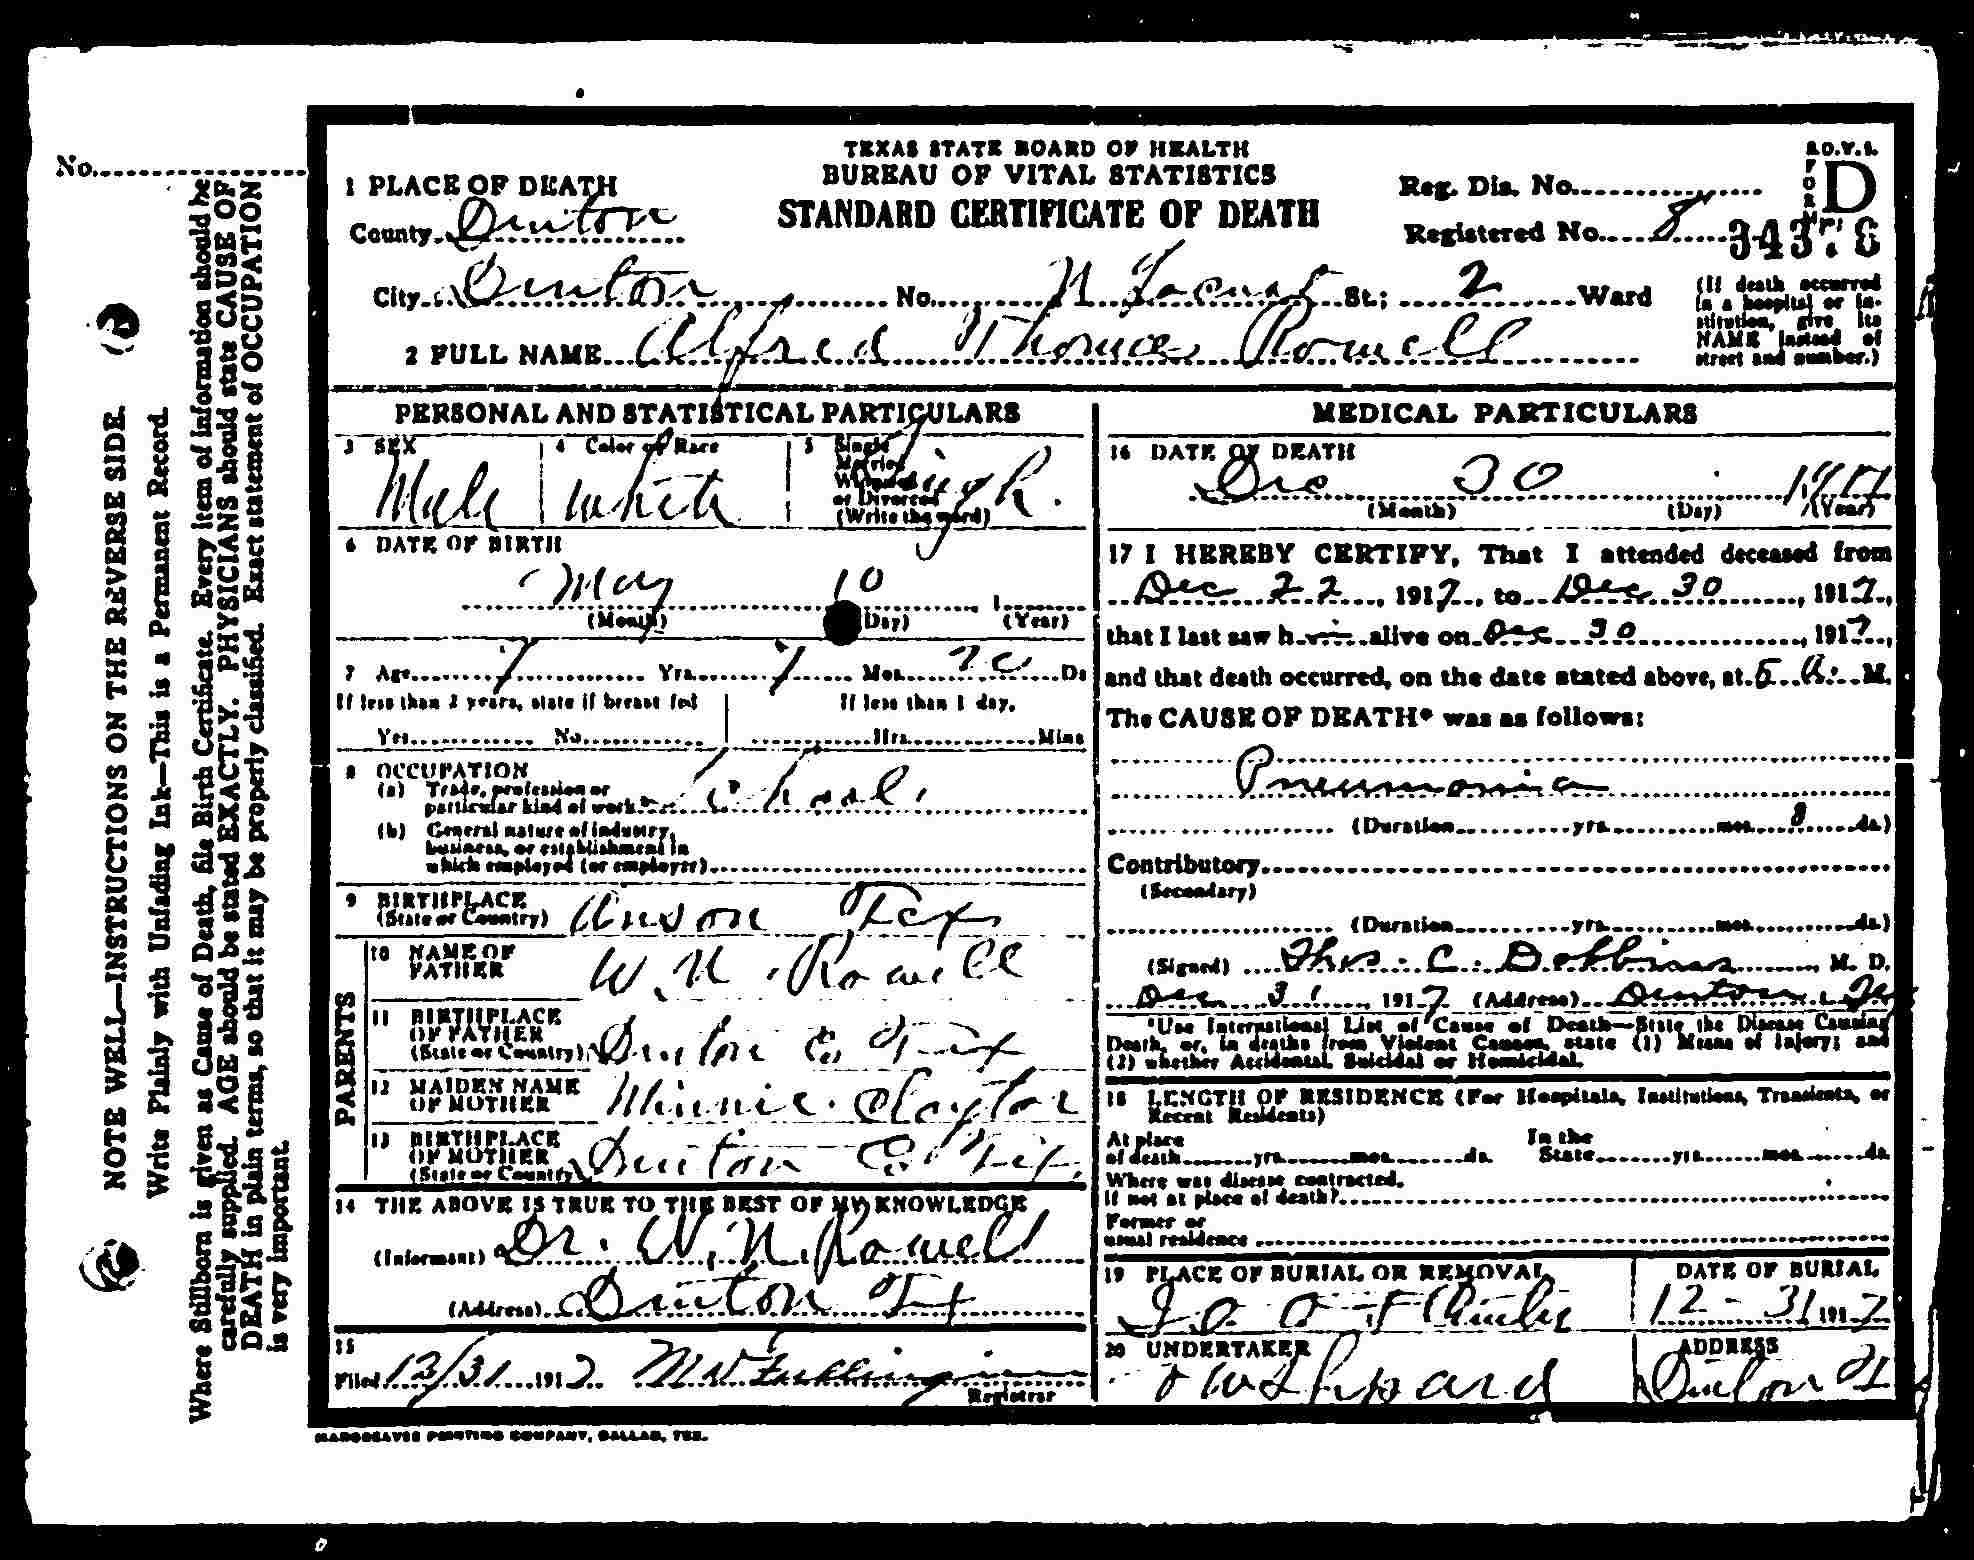 TEXAS STATE BOARD OF HEALTH
BUREAU OF VITAL STATISTICS
STANDARD CERTIFICATE OF DEATH
No.
1 PLACE OF DEATH
County Denton
Reg. Dis. No.
Registered No. 8
B.O.V.S.
FORM D
City Denton No. N Locust St.; 2 Ward
2 FULL NAME Alfred Thomas Rowell
(If death occurred in a hospital or institution, give its NAME instead of street and number.)
PERSONAL AND STATISTICAL PARTICULARS
3 SEX
Male
4 Color or Race
White
5 Single
Married
Widowed
or Divorced
(Write the word)
Single.
6 DATE OF BIRTH
May 10 1
(Month) (Day) (Year)
7 Age 7 Yrs. 7 Mos. 20 Ds
If less than 2 years, state if breast fed
Yes No
If less than 1 day,
Hrs. Mins
8 OCCUPATION
(a) Trade, profession or
particular kind of work School
(b) General nature of industry,
business, or establishment in
which employed (or employer)
9 BIRTHPLACE
(State or Country) Anson Tex
PARENTS
10 NAME OF
FATHER W. N. Rowell
11 BIRTHPLACE
OF FATHER
(State or Country) Denton Co Tex
12 MAIDEN NAME
OF MOTHER Minnie Clayton
13 BIRTHPLACE
OF MOTHER
(State or Country) Denton Co Tex.
14 THE ABOVE IS TRUE TO THE BEST OF MY KNOWLEDGE
(Informant) Dr. W. N. Rowell
(Address) Denton Tex
15
Filed 12/31 1917
Registrar
MEDICAL PARTICULARS
16 DATE OF DEATH
Dec 30 1917
(Month) (Day) (Year)
17 I HEREBY CERTIFY, That I attended deceased from
Dec 22, 1917, to Dec 30, 1917,
that I last saw him alive on Dec 30, 1917,
and that death occurred, on the date stated above, at 5 A. M.
The CAUSE OF DEATH* was as follows:
Pneumonia
(Duration yrs. mos. 8 ds.)
Contributory
(Secondary)
(Duration yrs. mos. ds.)
(Signed) Thos. C. Dobbins, M. D.
Dec 31, 1917 (Address) Denton, Tex
*Use International List of Cause of Death—State the Disease Causing
Death, or, in deaths from Violent Causes, state (1) Means of Injury; and
(2) whether Accidental, Suicidal or Homicidal.
18 LENGTH OF RESIDENCE (For Hospitals, Institutions, Transients, or
Recent Residents)
At place
of death yrs. mos. ds.
In the
State yrs. mos. ds.
Where was disease contracted,
if not at place of death?
Former or
usual residence
19 PLACE OF BURIAL OR REMOVAL
I O O F
DATE OF BURIAL
12-31 1917
20 UNDERTAKER
Shepard
ADDRESS
Denton
HARGREAVES PRINTING COMPANY, DALLAS, TEX.
NOTE WELL—INSTRUCTIONS ON THE REVERSE SIDE.
Write Plainly with Unfading Ink—This is a Permanent Record.
Where Stillborn is given as Cause of Death, file Birth Certificate. Every item of information should be
carefully supplied. AGE should be stated EXACTLY. PHYSICIANS should state CAUSE OF
DEATH in plain terms, so that it may be properly classified. Exact statement of OCCUPATION
is very important.